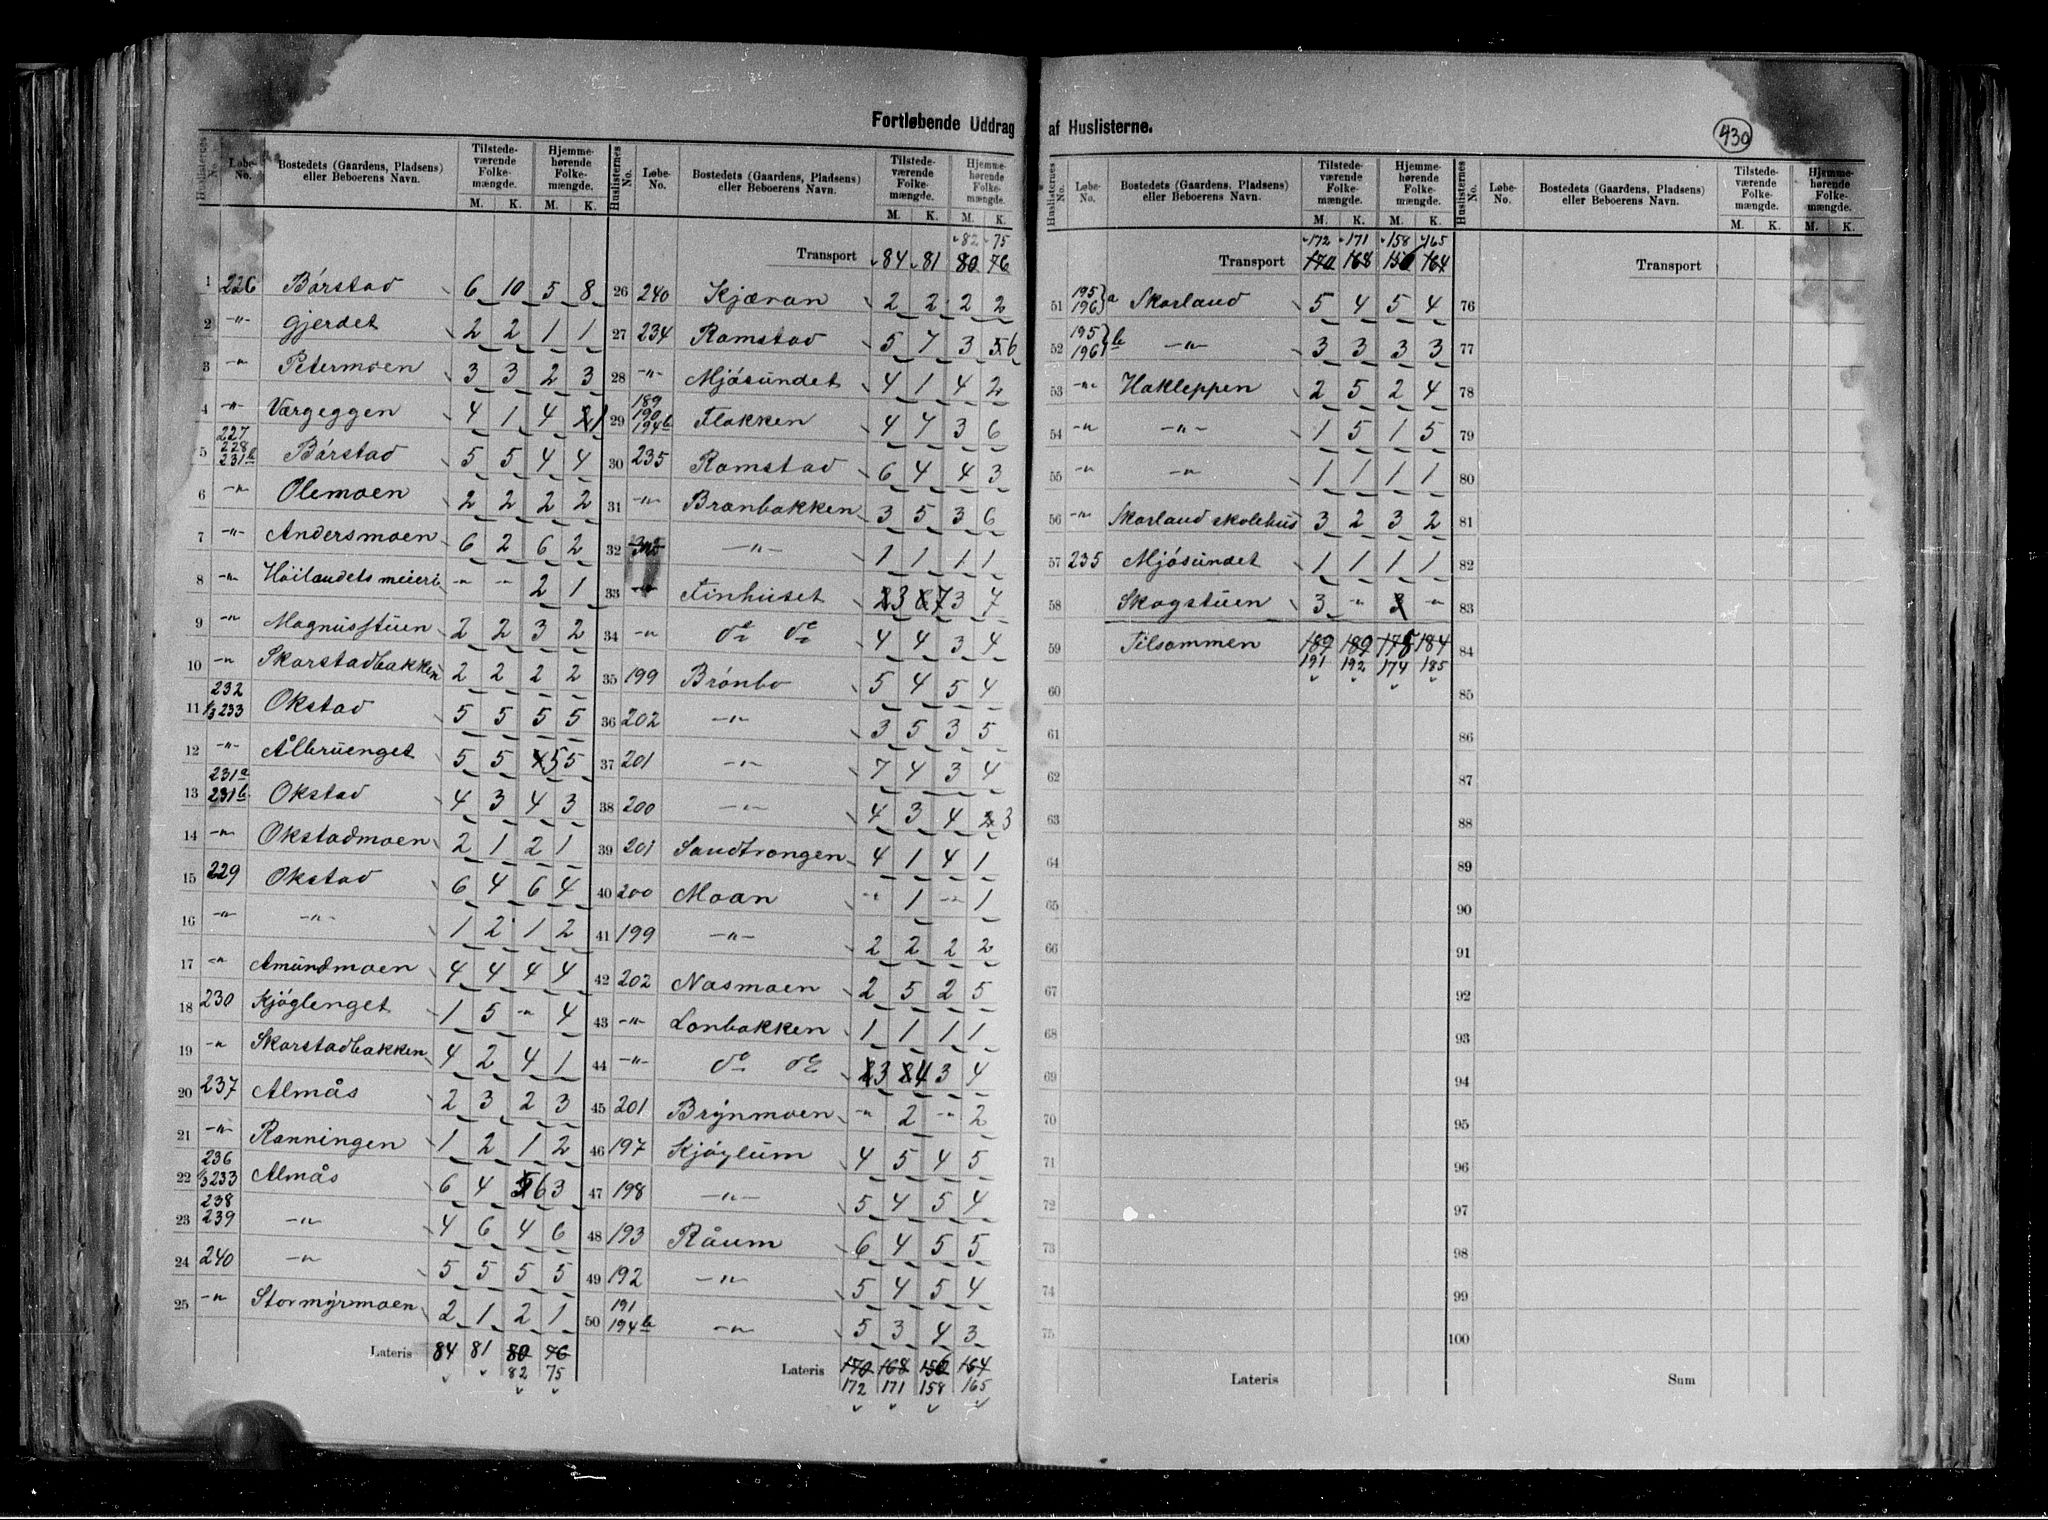 Fortløbende Uddrag af Huslisterne.
430
Huslisternes No. Løbe-No. Bostedets (Gaardens, Pladsens) eller Beboerens Navn. Tilstedeværende Folkemængde. M. K. Hjemmehørende Folkemængde. M. K.
1 226 Börstad 6 10 5 8
2 -"- Gjerdet 2 2 1 1
3 -"- Petermoen 3 3 2 3
4 -"- Værgeggen 4 1 4 1
5 227 228 231b Börstad 5 5 4 4
6 -"- Olemoen 2 2 2 2
7 -"- Andersmoen 6 2 6 2
8 -"- Höilandets meieri -"- -"- 2 1
9 -"- Magnusstuen 2 2 3 2
10 -"- Skarstadbakken 2 2 2 2
11 232 1/3 233 Okstad 5 5 5 5
12 -"- Ålbruenget 5 5 4 5 5
13 231a 231b Okstad 4 3 4 3
14 -"- Okstadmoen 2 1 2 1
15 229 Okstad 6 4 6 4
16 -"- -"- 1 2 1 2
17 -"- Amundmoen 4 4 4 4
18 230 Kjöglenget 1 5 -"- 4
19 -"- Skarstadbakken 4 2 4 1
20 237 Almås 2 3 2 3
21 -"- Ranningen 1 2 1 2
22 236 1/3 233 Almås 6 4 5 6 3
23 238 239 -"- 4 6 4 6
24 240 -"- 5 5 5 5
25 -"- Stormyrmoen 2 1 2 1
Lateris 84 81 80 76
82 75
Huslisternes No. Løbe-No. Bostedets (Gaardens, Pladsens) eller Beboerens Navn. Tilstedeværende Folkemængde. M. K. Hjemmehørende Folkemængde. M. K.
82 75
Transport 84 81 80 76
26 240 Kjæran 2 2 2 2
27 234 Ramstad 5 7 3 5 6
28 -"- Mjösundet 4 1 4 2
29 189 190 194b Flakken 4 7 3 6
30 235 Ramstad 6 4 4 3
31 -"- Branbakken 3 5 3 6
32 -"- 1 1 1 1
33 -"- Finhuset 2 3 8 7 3 7
34 -"- do do 4 4 3 4
35 199 Brönbo 5 4 5 4
36 202 -"- 3 5 3 5
37 201 -"- 7 4 3 4
38 200 -"- 4 3 4 2 3
39 201 Sandtrangen 4 1 4 1
40 200 Moan -"- 1 -"- 1
41 199 -"- 2 2 2 2
42 202 Nasmoen 2 5 2 5
43 -"- Lonbakken 1 1 1 1
44 -"- do do 3 4 3 4
45 201 Brynmoen -"- 2 -"- 2
46 197 Kjöglum 4 5 4 5
47 198 -"- 5 4 5 4
48 193 Råum 6 4 5 5
49 192 -"- 5 4 5 4
50 191 194b -"- 5 3 4 3
Lateris 170 168 156 164
172 171 158 165
Huslisternes No. Løbe-No. Bostedets (Gaardens, Pladsens) eller Beboerens Navn. Tilstedeværende Folkemængde. M. K. Hjemmehørende Folkemængde. M. K.
172 171 158 165
Transport 170 168 156 164
51 195 196 a Skarland 5 4 5 4
52 195 196 b -"- 3 3 3 3
53 -"- Hakleppen 2 5 2 4
54 -"- -"- 1 5 1 5
55 -"- -"- 1 1 1 1
56 -"- Skarland skolehus 3 2 3 2
57 235 Mjösundet 1 1 1 1
58 Skogstuen 3 -"- 3 -"-
59 Tilsammen 189 189 175 184
191 192 174 185
60
61
62
63
64
65
66
67
68
69
70
71
72
73
74
75
Lateris
Huslisternes No. Løbe-No. Bostedets (Gaardens, Pladsens) eller Beboerens Navn. Tilstedeværende Folkemængde. M. K. Hjemmehørende Folkemængde. M. K.
Transport
76
77
78
79
80
81
82
83
84
85
86
87
88
89
90
91
92
93
94
95
96
97
98
99
100
Sum